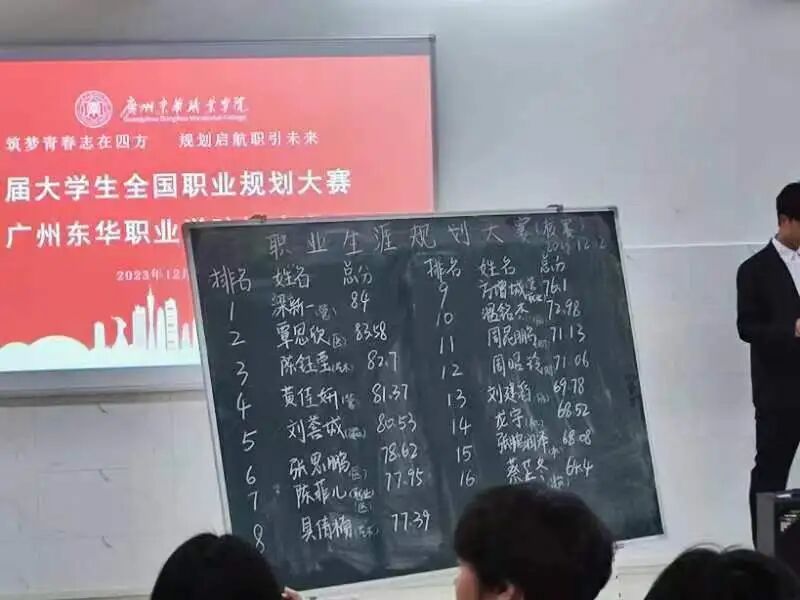 广州东华职业学院
Guangzhou Donghua Vocational College
筑梦青春志在四方 规划启航职引未来
届大学生全国职业规划大赛
广州东华职业学
2023年12月
职业生涯规划大赛(决赛)
排名 姓名 总分
1 梁新一(管) 84
2 覃思欣(医) 83.58
3 陈钰雯 82.7
4 黄佳妍(管) 81.37
5 刘荟城 80.53
6 张思鹏(医) 78.62
7 陈菲儿 77.95
8 吴倩楠 77.39
排名 姓名 总分
9 方增城 76.1
10 温铭杰 72.98
11 周昆鹏 71.13
12 周晗玲 71.06
13 刘建滔 69.78
14 龙宇 68.52
15 张鹏润泽 68.08
16 蔡芷冬 64.4